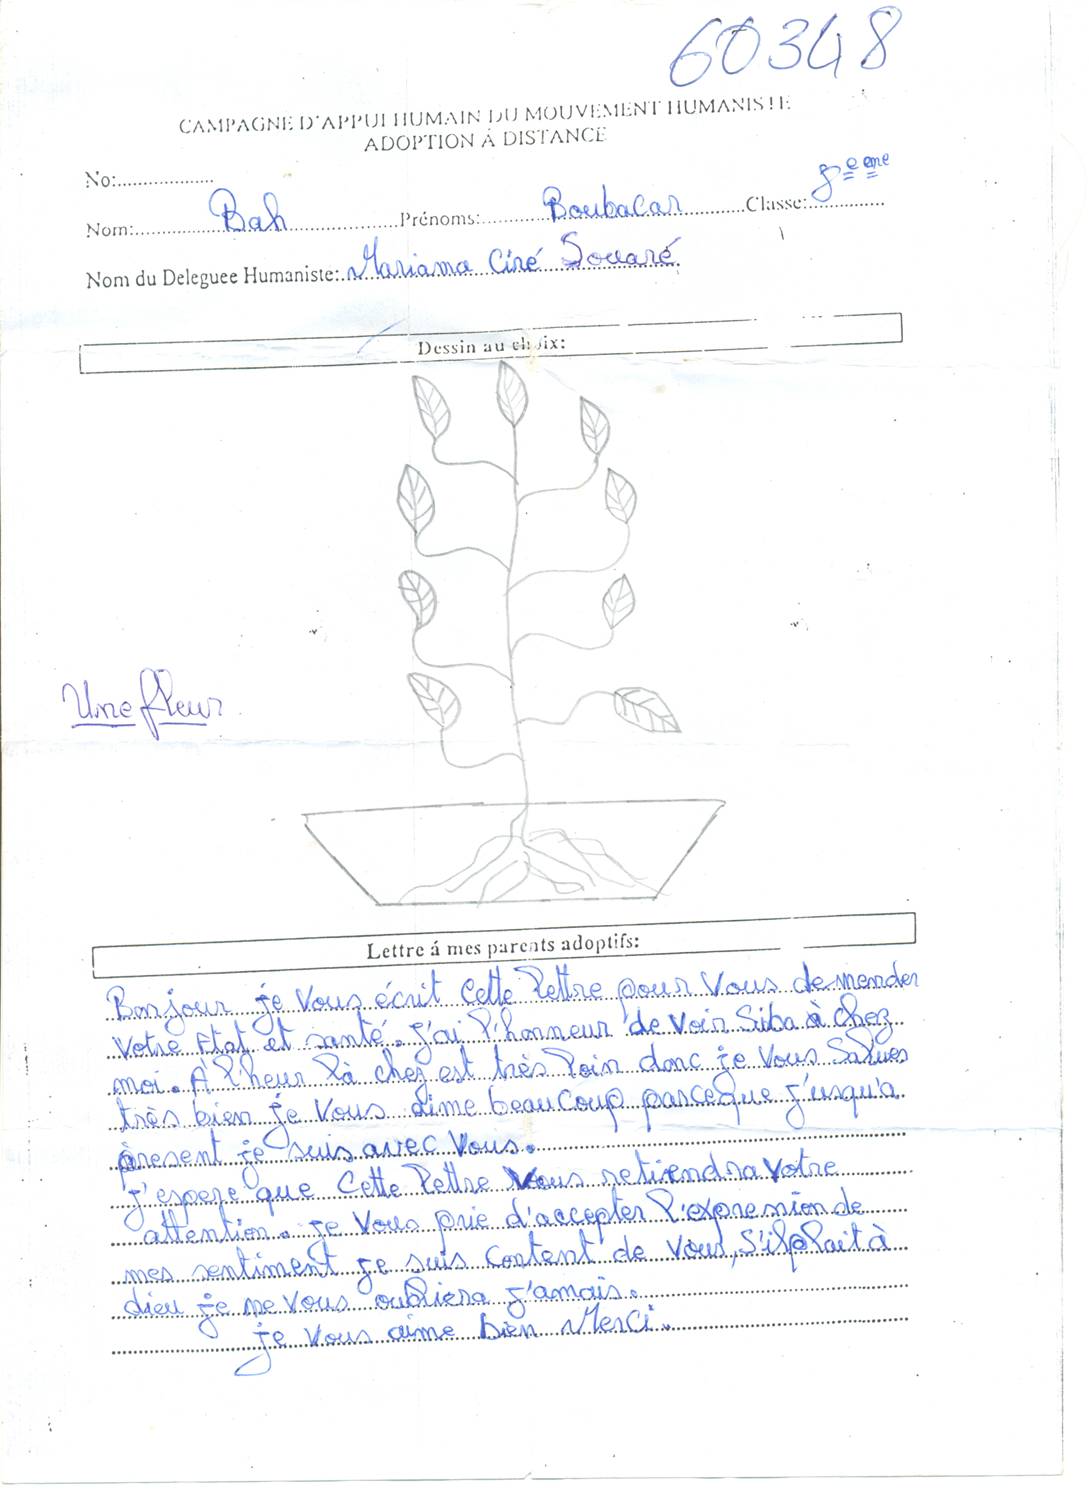 60348
CAMPAGNE D'APPUI HUMAIN DU MOUVEMENT HUMANISTE
ADOPTION Á DISTANCE
No:...................
Nom: Bah Prénoms: Boubacar Classe: 8eeme
Nom du Deleguee Humaniste: Mariama Ciré Souaré
Dessin au choix:
Une fleur
Lettre á mes parents adoptifs:
Bonjour je vous écrit cette lettre pour vous demender
votre Etat et santé. J'ai l'honneur de voir Siba à chez
moi. A l'heur là chez est très loin donc je vous salues
très bien je vous aime beaucoup parceque j'usqu'a
present je suis avec vous.
j'espere que cette lettre vous retiendra votre
attention. je vous prie d'accepter l'expression de
mes sentiment je suis content de vous, s'ilplait à
dieu je ne vous oubliera j'amais.
je vous aime bien Merci.